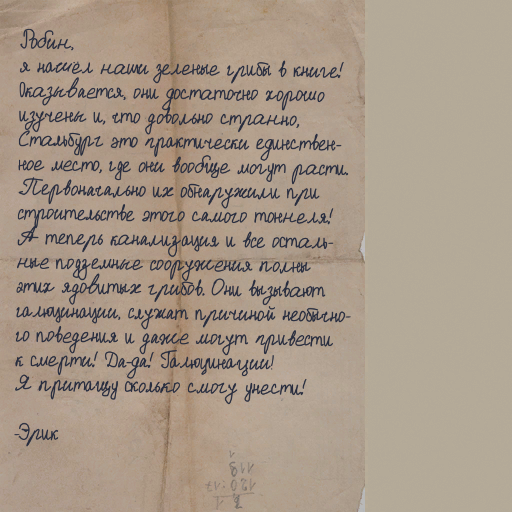 Робин,
я нашёл наши зеленые грибы в книге!
Оказывается, они достаточно хорошо
изучены и, что довольно странно,
Стальбург это практически единствен-
ное место, где они вообще могут расти.
Первоначально их обнаружили при
строительстве этого самого тоннеля!
А теперь канализация и все осталь-
ные подземные сооружения полны
этих ядовитых грибов. Они вызывают
галюцинации, служат причиной необычно-
го поведения и даже могут привести
к смерти! Да-да! Галюцинации!
Я притащу сколько смогу унести!
-Эрик